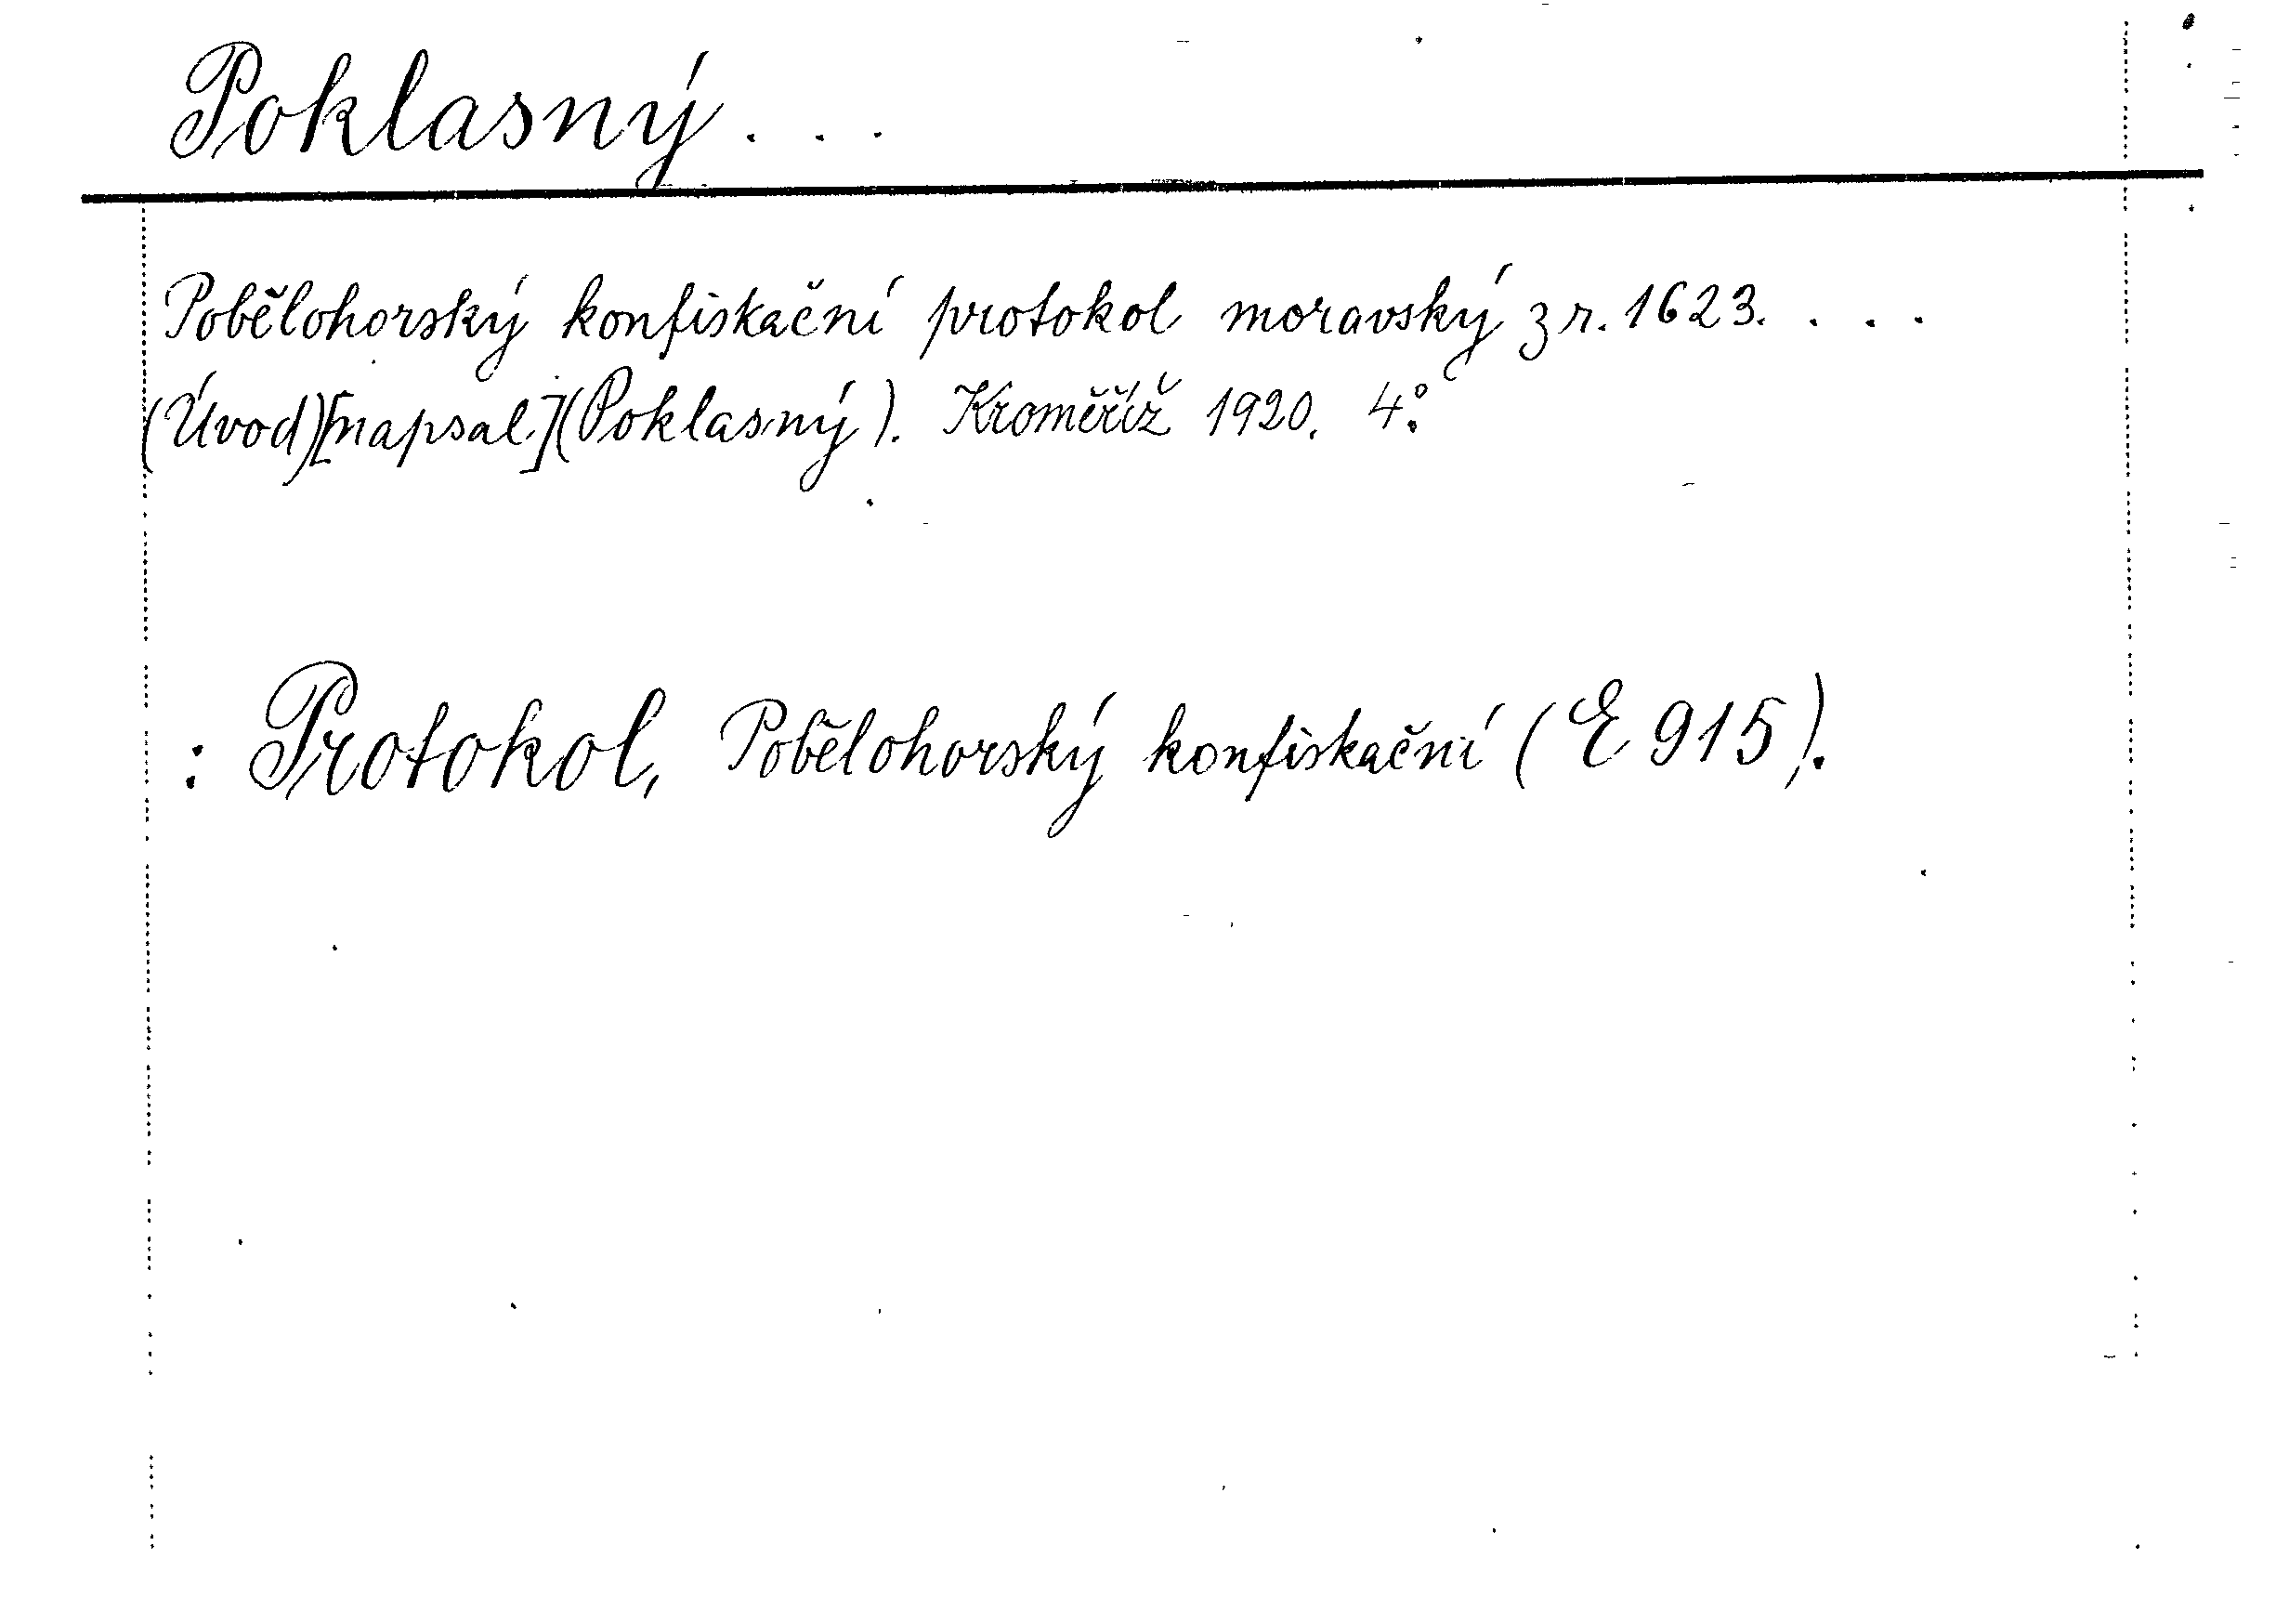 Poklasný . . .
Pobělohorský konfiskační protokol moravský z r. 1623. . . .
(Úvod)[napsal](Poklasný). Kroměříž 1920. 4°.
: Protokol, Pobělohorský konfiskační (E 915).